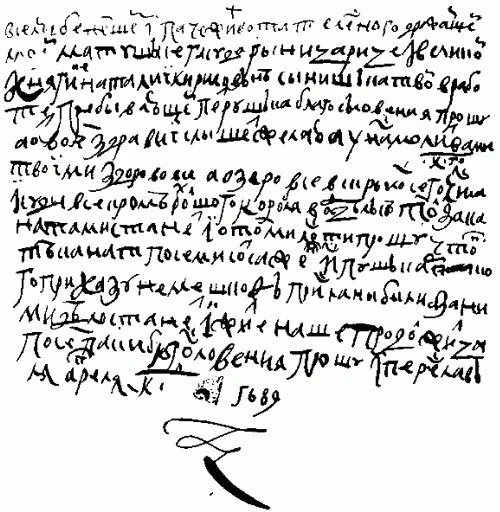 вселюбезнейшей i паче живота телесного дражайшей
моей матушке гсдрыни царице i великой
княгине наталии кириловне сынишка твой в рабо
те пребывающей петрушка благословения прошу
а о твоем здравии слышеть желаю а у нас молитвами
твоими здорово все а озеро все вскрылось сего к го числа
i суды все кромъ болшого корабля в отделке толко за кана
натами станет i о том милости прошу чтоб
те канаты по семисот сажен ис пушкарско
го приказу не мешкав присланы были а за ни
ми дело станет i житие наше продолжица
по сем паки благословения прошу iс переславъ
ля апреля к 1689